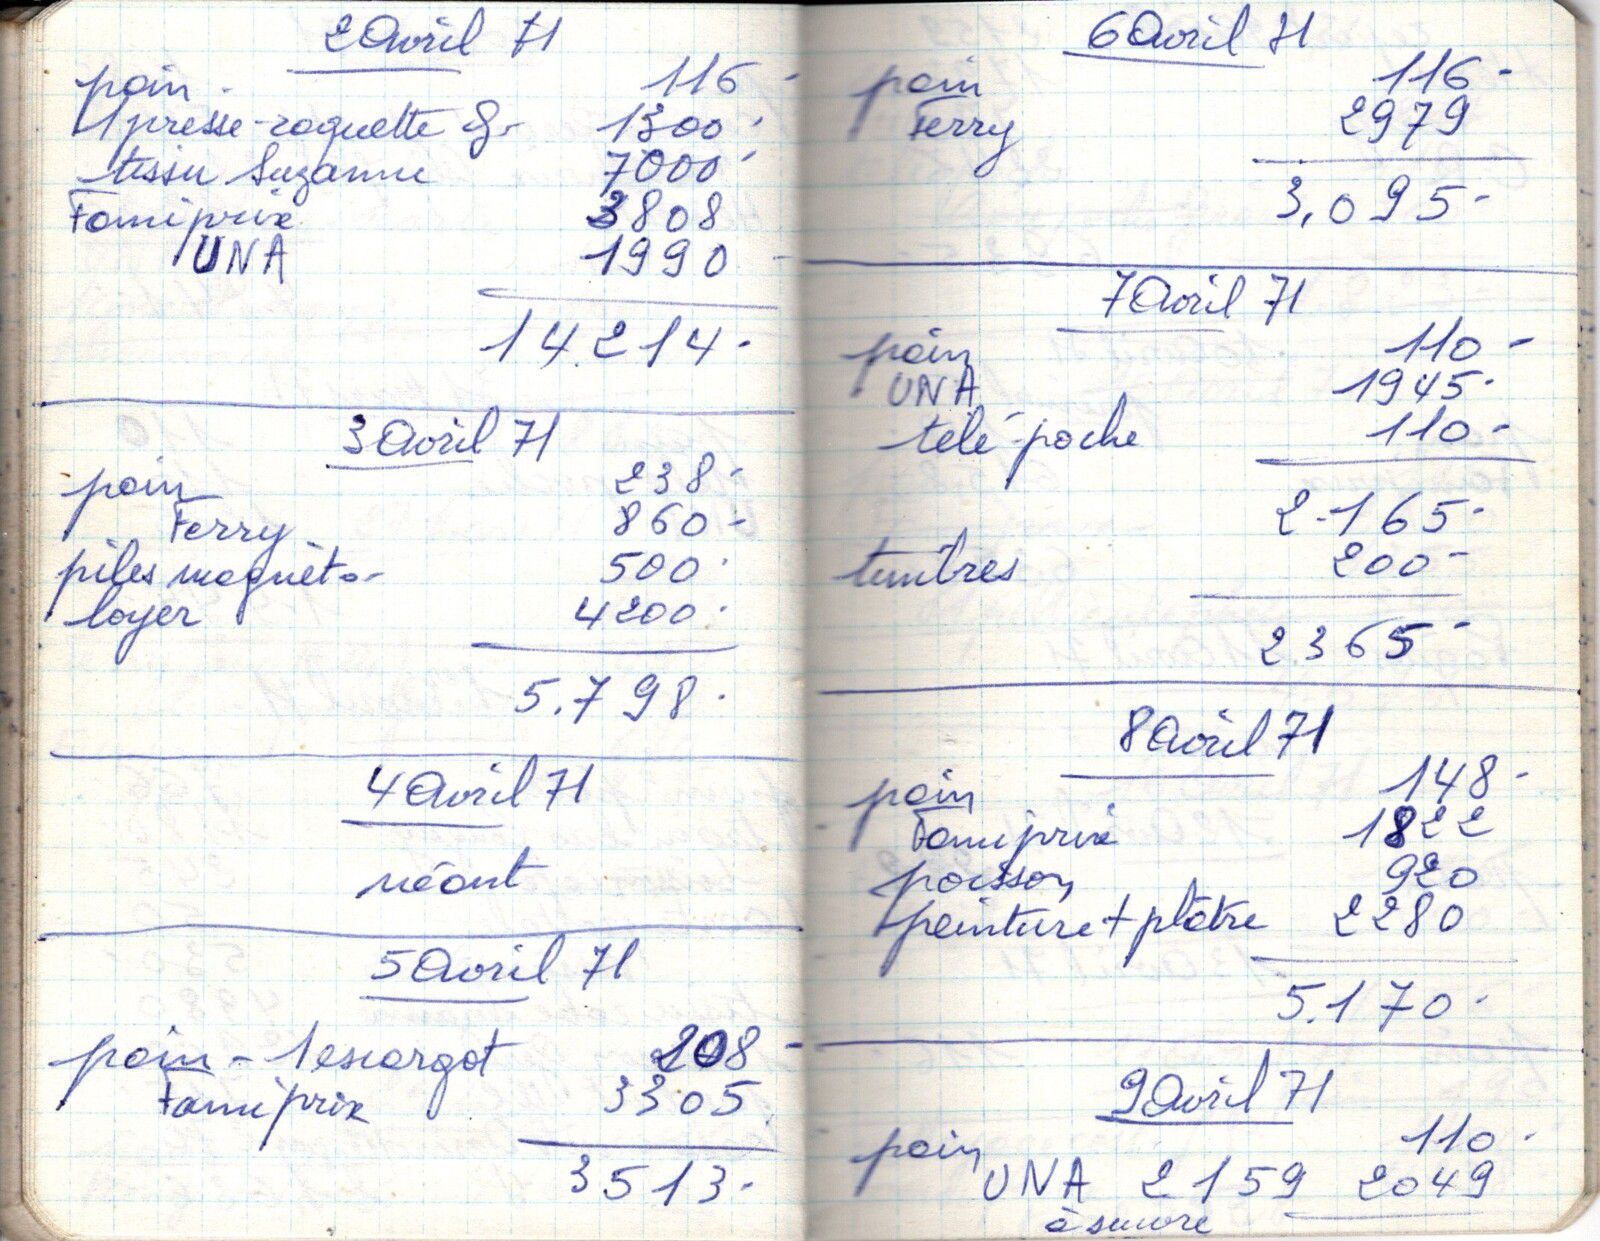 2 Avril 71
pain - 116 -
1 presse-raquette J- 1300 -
tissu Suzanne 7000 -
Famiprix 3808
UNA 1990 -
14.214.
3 Avril 71
pain 238 -
Ferry 860 -
piles magnéto- 500 -
loyer 4200 -
5.798.
4 Avril 71
néant
5 Avril 71
pain - 1 escargot 208 -
Famiprix 3305
3513.
6 Avril 71
pain 116 -
Ferry 2979
3,095 -
7 Avril 71
pain 110 -
UNA 1945.
télé-poche 110 -
2.165.
timbres 200 -
2365 -
8 Avril 71
pain 148 -
Famiprix 1822
poisson 920
peinture + plâtre 2280
5.170.
9 Avril 71
pain 110 -
UNA 2159 2049
à suivre